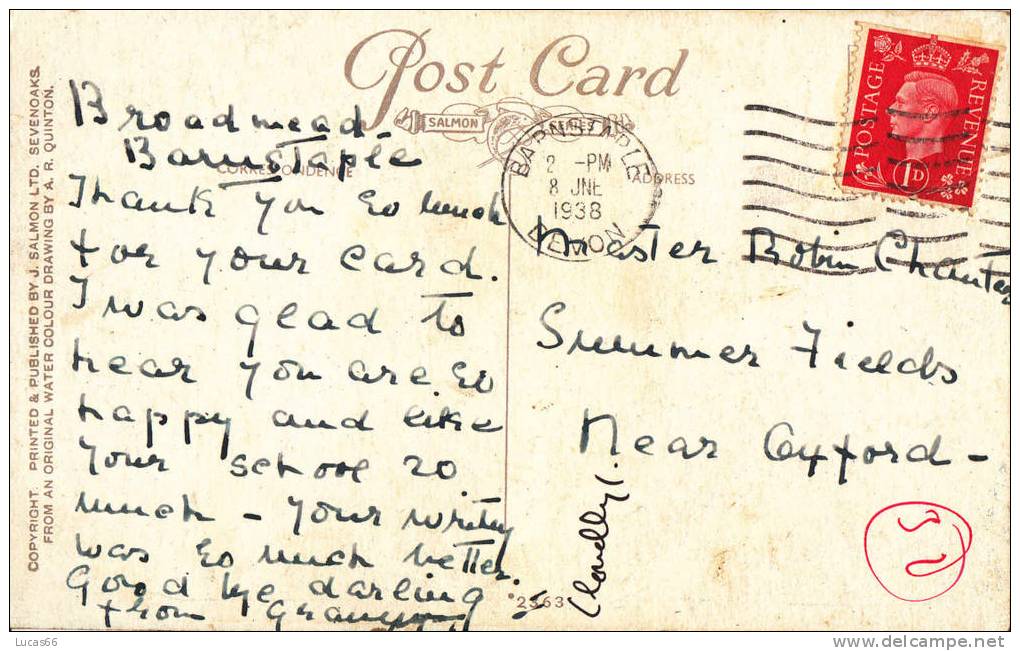 COPYRIGHT. PRINTED & PUBLISHED BY J. SALMON LTD. SEVENOAKS.
FROM AN ORIGINAL WATER COLOUR DRAWING BY A. R. QUINTON.
Post Card
SALMON SERIES
CORRESPONDENCE
ADDRESS
Broadmead -
Barnstaple
Thank you so much
for your card.
I was glad to
hear you are so
happy and like
your school so
much - your writing
was so much better.
Good bye darling
from Granny
BARNSTAPLE
2 -PM
8 JNE
1938
DEVON
POSTAGE
REVENUE
1D
Master Robin Chanter
Summer Fields
Near Oxford -
*2563
Clovelly 1.
Lucas66
www.delcampe.net